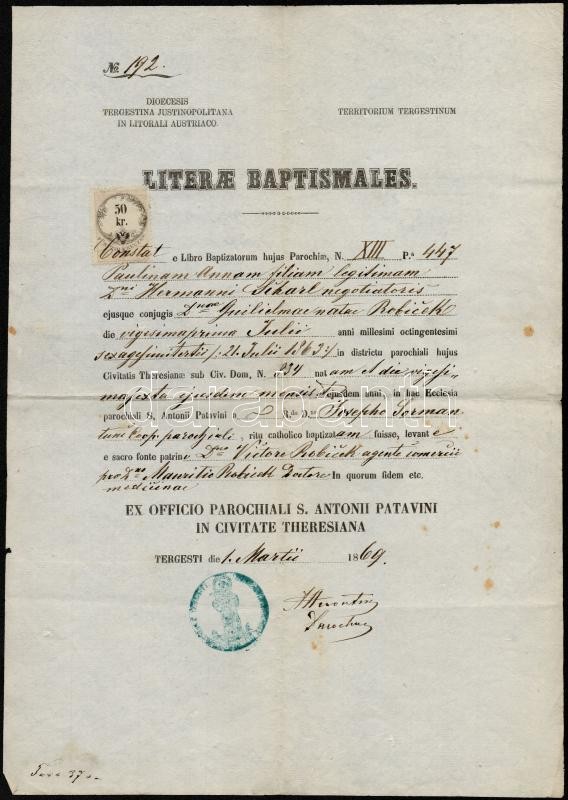 № 192.
DIOECESIS
TERGESTINA JUSTINOPOLITANA
IN LITORALI AUSTRIACO.
TERRITORIUM TERGESTINUM
LITERÆ BAPTISMALES.
50
kr.
Constat e Libro Baptizatorum hujus Parochiæ, N. XIII P.ª 447
Paulinam Annam filiam legitimam
Dni Hermanni Scharl negotiatoris
ejusque conjugis Dnae Guilielmae natae Robiček
die vigesimaprima Julii anni millesimi octingentesimi
sexagesimitertii /: 21. Julii 1863 :/ in districtu parochiali hujus
Civitatis Theresianæ sub Civ. Dom, N. 234 natam et die vigesi-
masexta ejusdem mensis et ejusdem anni, in hac Ecclesia
parochiali S. Antonii Patavini a R. D. Josepho Torman
Coop. parochiali, ritu catholico baptizatam fuisse, levante
e sacro fonte patrino Dno Victore Robiček agente comercii
pro Dno Mauritio Robicek Doctore In quorum fidem etc.
medicinae
EX OFFICIO PAROCHIALI S. ANTONII PATAVINI
IN CIVITATE THERESIANA
TERGESTI die 1. Martii 1869.
Parochus
Taxa 37
darabanth